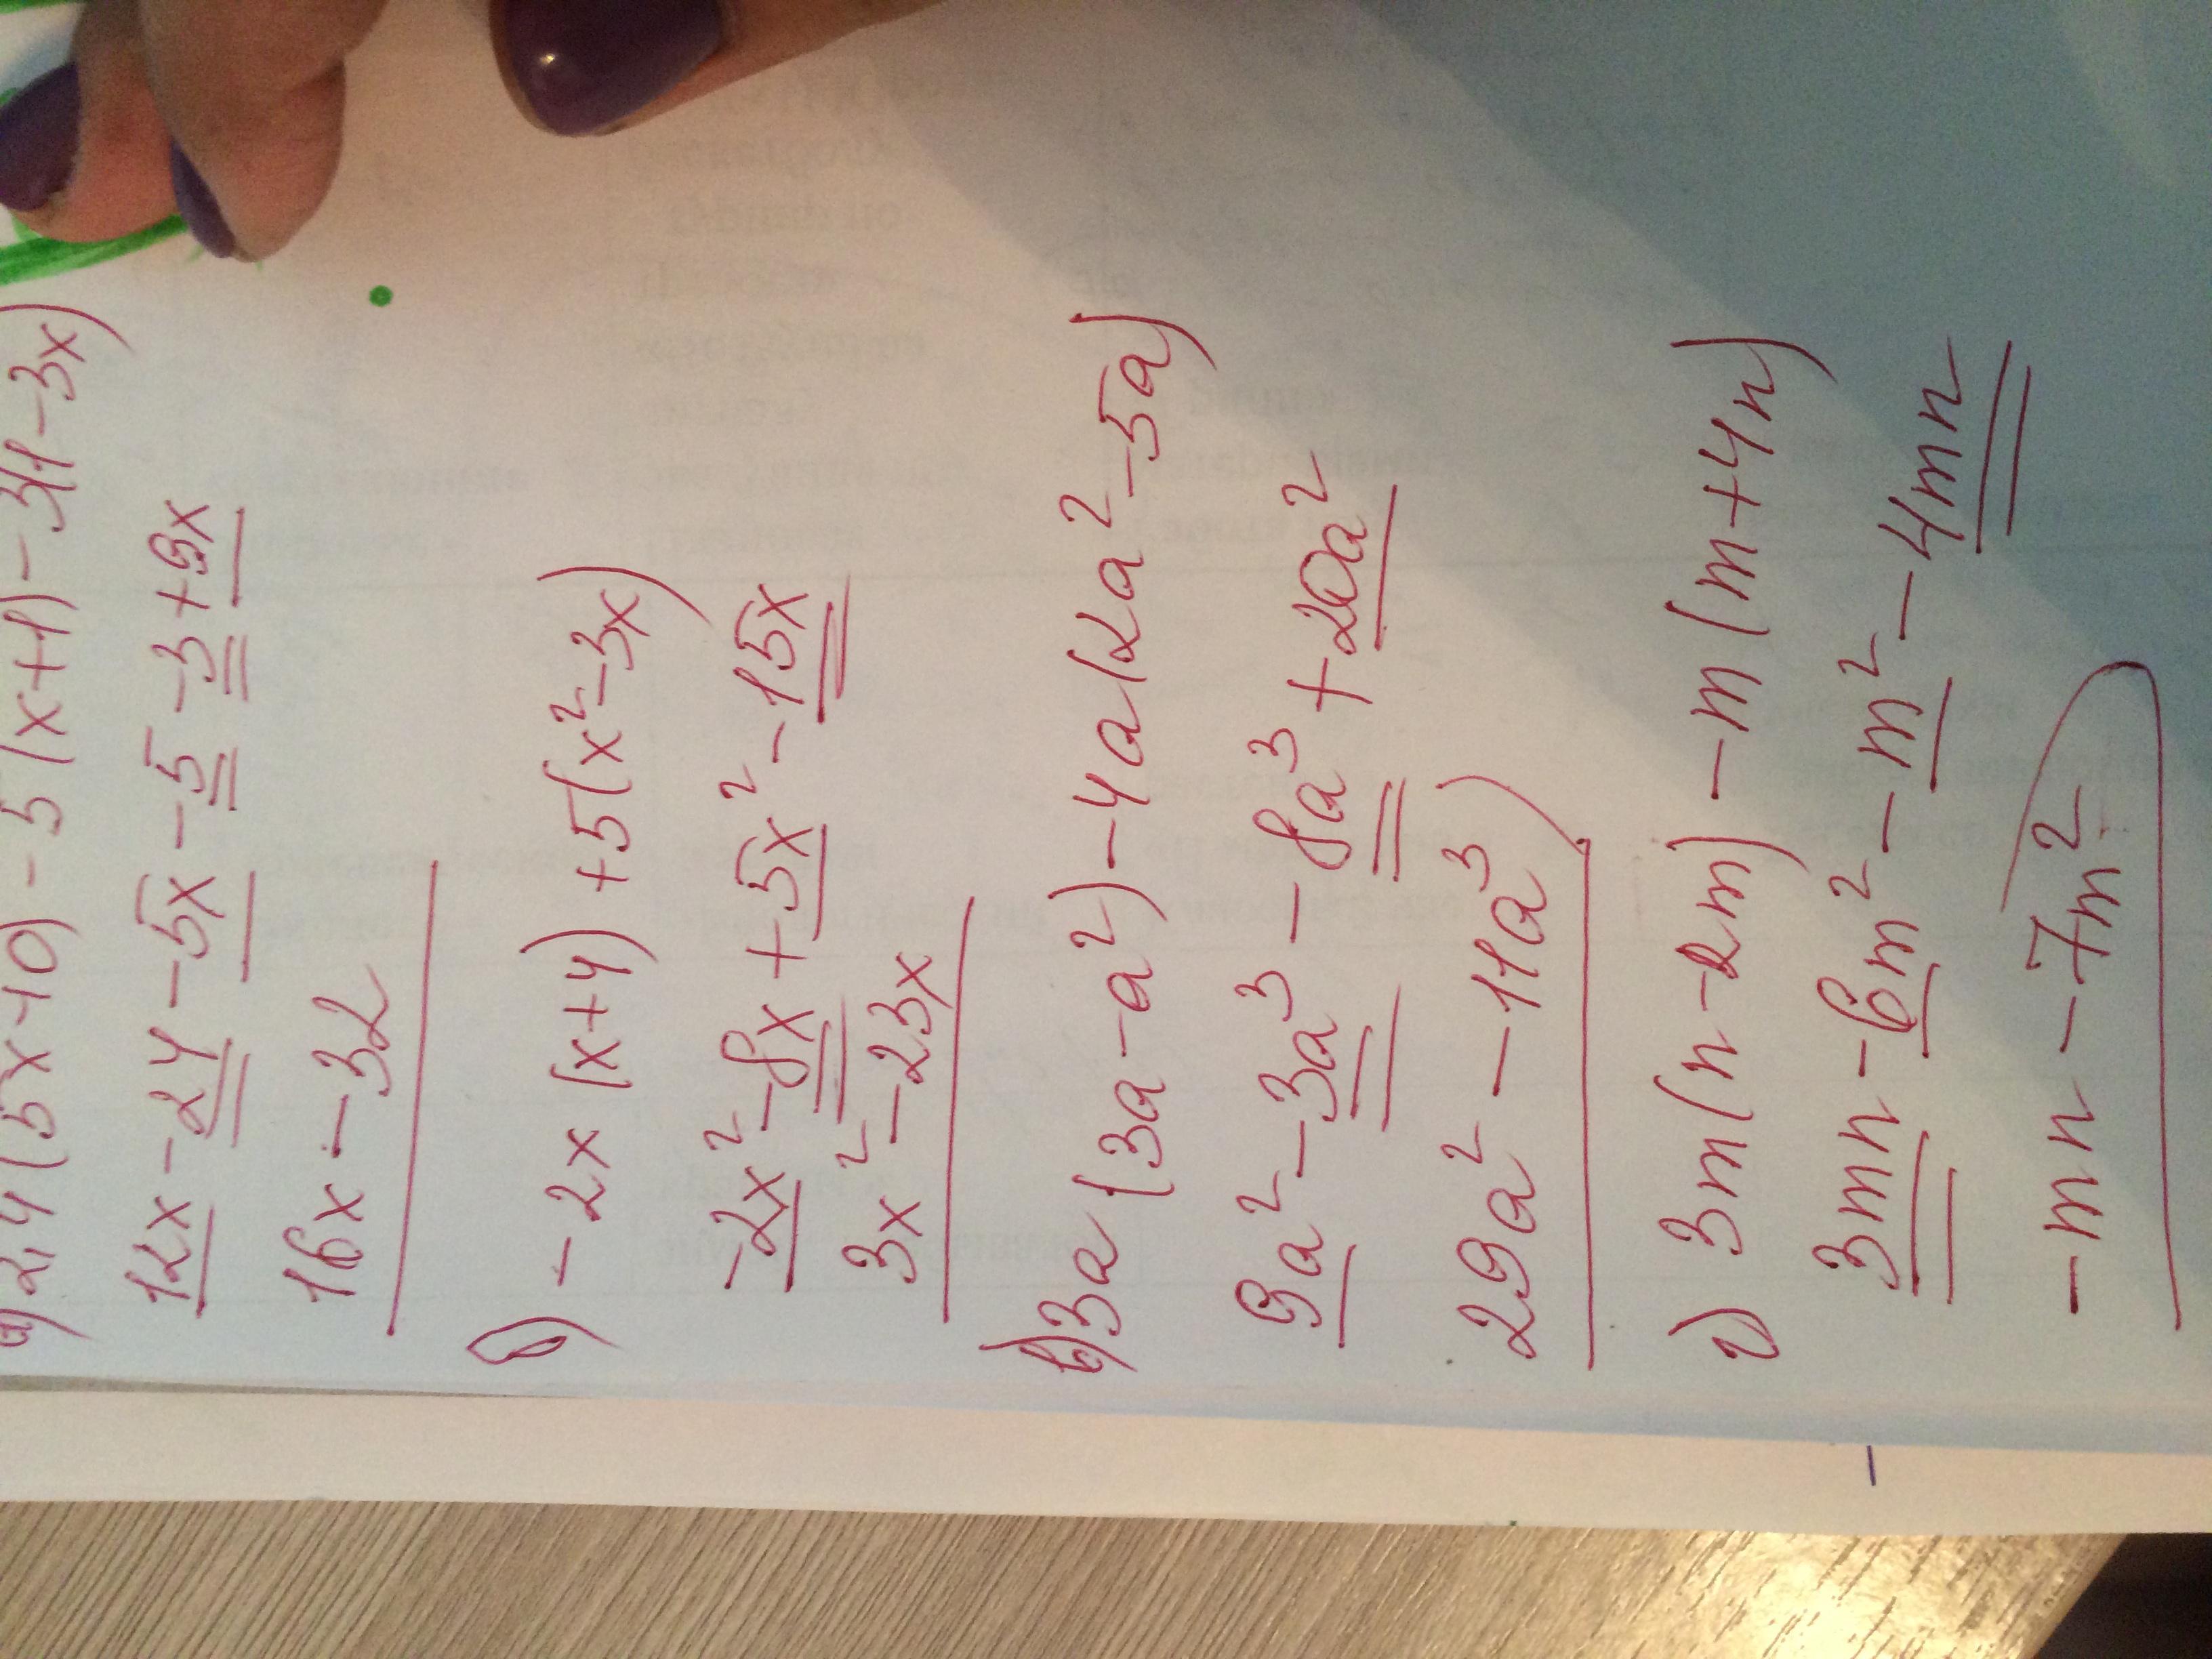 а) 2,4(5x-10) - 5(x+1) - 3(1-3x)
12x - 24 - 5x - 5 - 3 + 9x
16x - 32
б) -2x(x+4) + 5(x²-3x)
-2x² - 8x + 5x² - 15x
3x² - 23x
в) 3a(3a-a²) - 4a(2a²-5a)
9a² - 3a³ - 8a³ + 20a²
29a² - 11a³
г) 3m(n-2m) - m(m+4n)
3mn - 6m² - m² - 4mn
-mn - 7m²